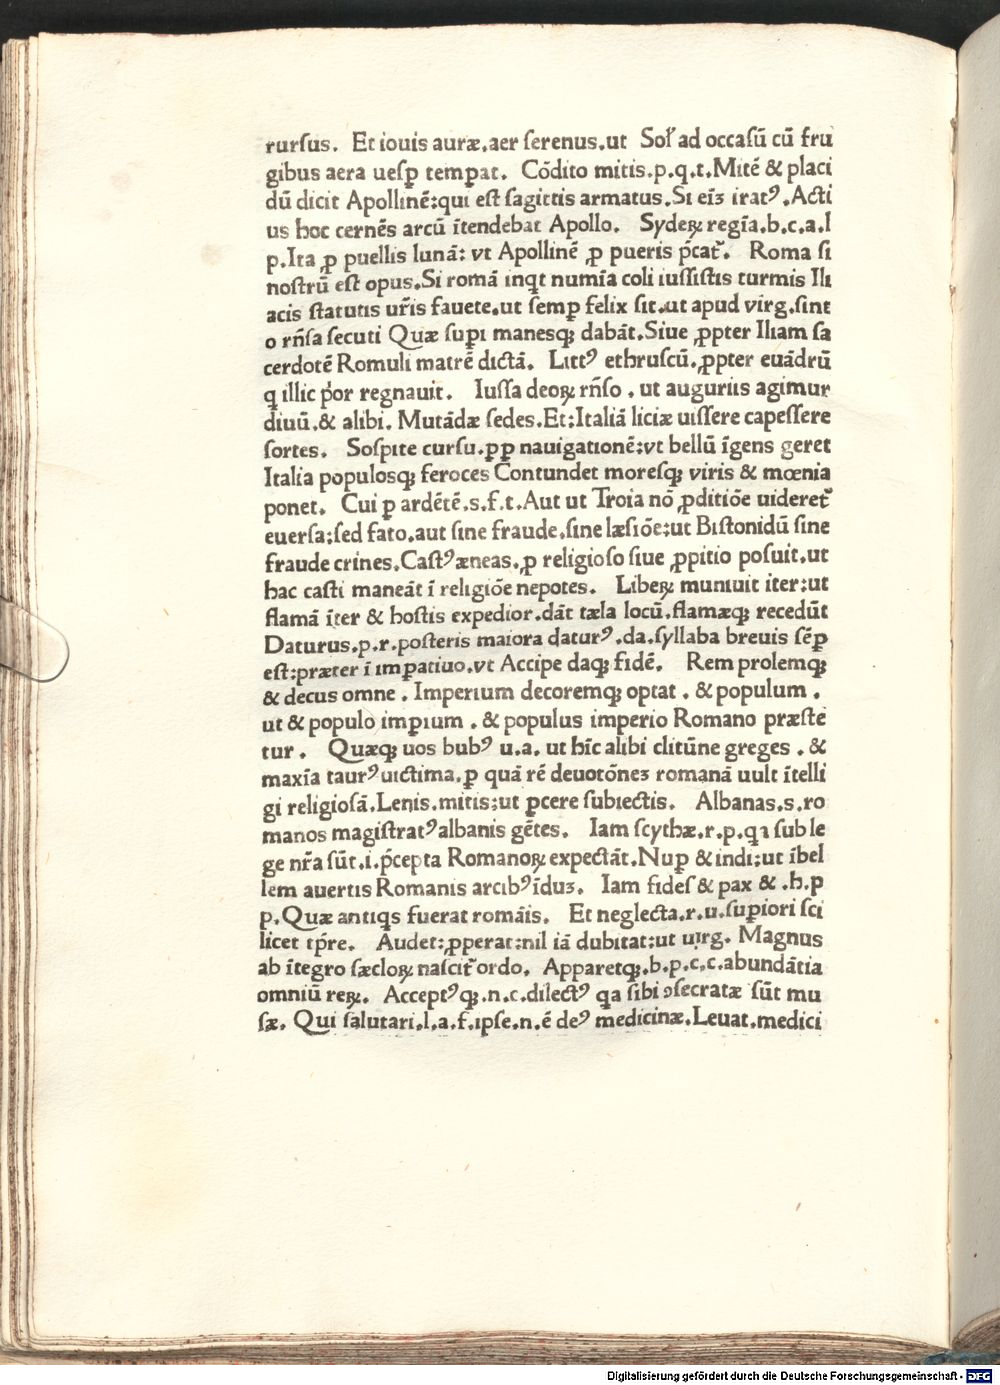 rurſus. Et iouis auræ.aer ſerenus.ut Sol̃ ad occaſũ cũ fru
gibus aera ueſꝑ temꝑat. Cõdito mitis.p.q.t.Mitẽ & placi
dũ dicit Apollinẽ:qui eſt ſagittis armatus.Si eĩꝫ iratꝰ.Acti
us hoc cernẽs arcũ ĩtendebat Apollo. Sydeꝝ regĩa.b.c.a.l
p.Ita ꝓ puellis lunã: vt Apollinẽ ꝓ pueris p̃cat᷑. Roma ſi
noſtrũ eſt opus.Si romã inqt numĩa coli iuſſiſtis turmis Ili
acis ſtatutis ur̃is fauete.ut ſemꝑ felix ſit.ut apud virg.ſint
o rñſa ſecuti Quæ ſuꝑi manesqꝫ dabãt.Siue ꝓpter Iliam ſa
cerdotẽ Romuli matrẽ dictã. Littꝰ ethruſcũ.ꝓpter euãdrũ
q illic p̃or regnauit. Iuſſa deoꝝ rñſo . ut auguriis agimur
diuũ.& alibi. Mutãdæ ſedes.Et:Italiã liciæ uiſſere capeſſere
ſortes. Soſpite curſu.ꝑp nauigationẽ:vt bellũ ĩgens geret
Italia populosqꝫ feroces Contundet moreſqꝫ viris & mœnia
ponet. Cui ꝑ ardẽtẽ.s.f.t.Aut ut Troia nõ ꝓditiõe uideret᷑
euerſa:ſed fato.aut ſine fraude.ſine læſiõe:ut Biſtonidũ ſine
fraude crines.Caſtꝰ æneas.ꝓ religioſo ſiue ꝓpitio poſuit.ut
hac caſti maneãt ĩ religiõe nepotes. Libeꝝ muniuit iter:ut
flamã ĩter & hoſtis expedior.dãt tæla locũ.flamæqꝫ recedũt
Daturus.p.r.poſteris maiora daturꝰ.da.ſyllaba breuis ſẽꝑ
eſt:præter ĩ imꝑatiuo.vt Accipe daqꝫ fidẽ. Rem prolemqꝫ
& decus omne . Imperium decoremqꝫ optat . & populum .
ut & populo imꝑium . & populus imperio Romano præſte
tur . Quæqꝫ uos bubꝰ u.a. ut hĩc alibi clitũne greges . &
maxĩa taurꝰ uictima.ꝑ quã rẽ deuotõneꝫ romanã uult ĩtelli
gi religioſã.Lenis.mitis:ut ꝑcere ſubiectis. Albanas.s.ro
manos magiſtratꝰ albanis gẽtes. Iam ſcythæ.r.p.qꝛ ſub le
ge nr̃a ſũt.i.p̃cepta Romanoꝝ expectãt.Nuꝑ & indi:ut ĩbel
lem auertis Romanis arcibꝰ ĩduꝫ. Iam fideſ & pax & .h.p
p.Quæ antiqs fuerat romãis. Et neglecta.r.u.ſuꝑiori ſci
licet tp̃re. Audet:ꝓperat:nil iã dubitat:ut uirg. Magnus
ab ĩtegro ſæcloꝝ naſcit᷑ ordo. Apparetqꝫ.b.p.c.c.abundãtia
omniũ reꝝ. Acceptꝰ qꝫ.n.c.dilectꝰ qa ſibi ꝯſecratæ ſũt mu
ſæ. Qui ſalutari.l.a.f.ipſe.n.ẽ deꝰ medicinæ.Leuat.medici
Digitalisierung gefördert durch die Deutsche Forschungsgemeinschaft - DFG